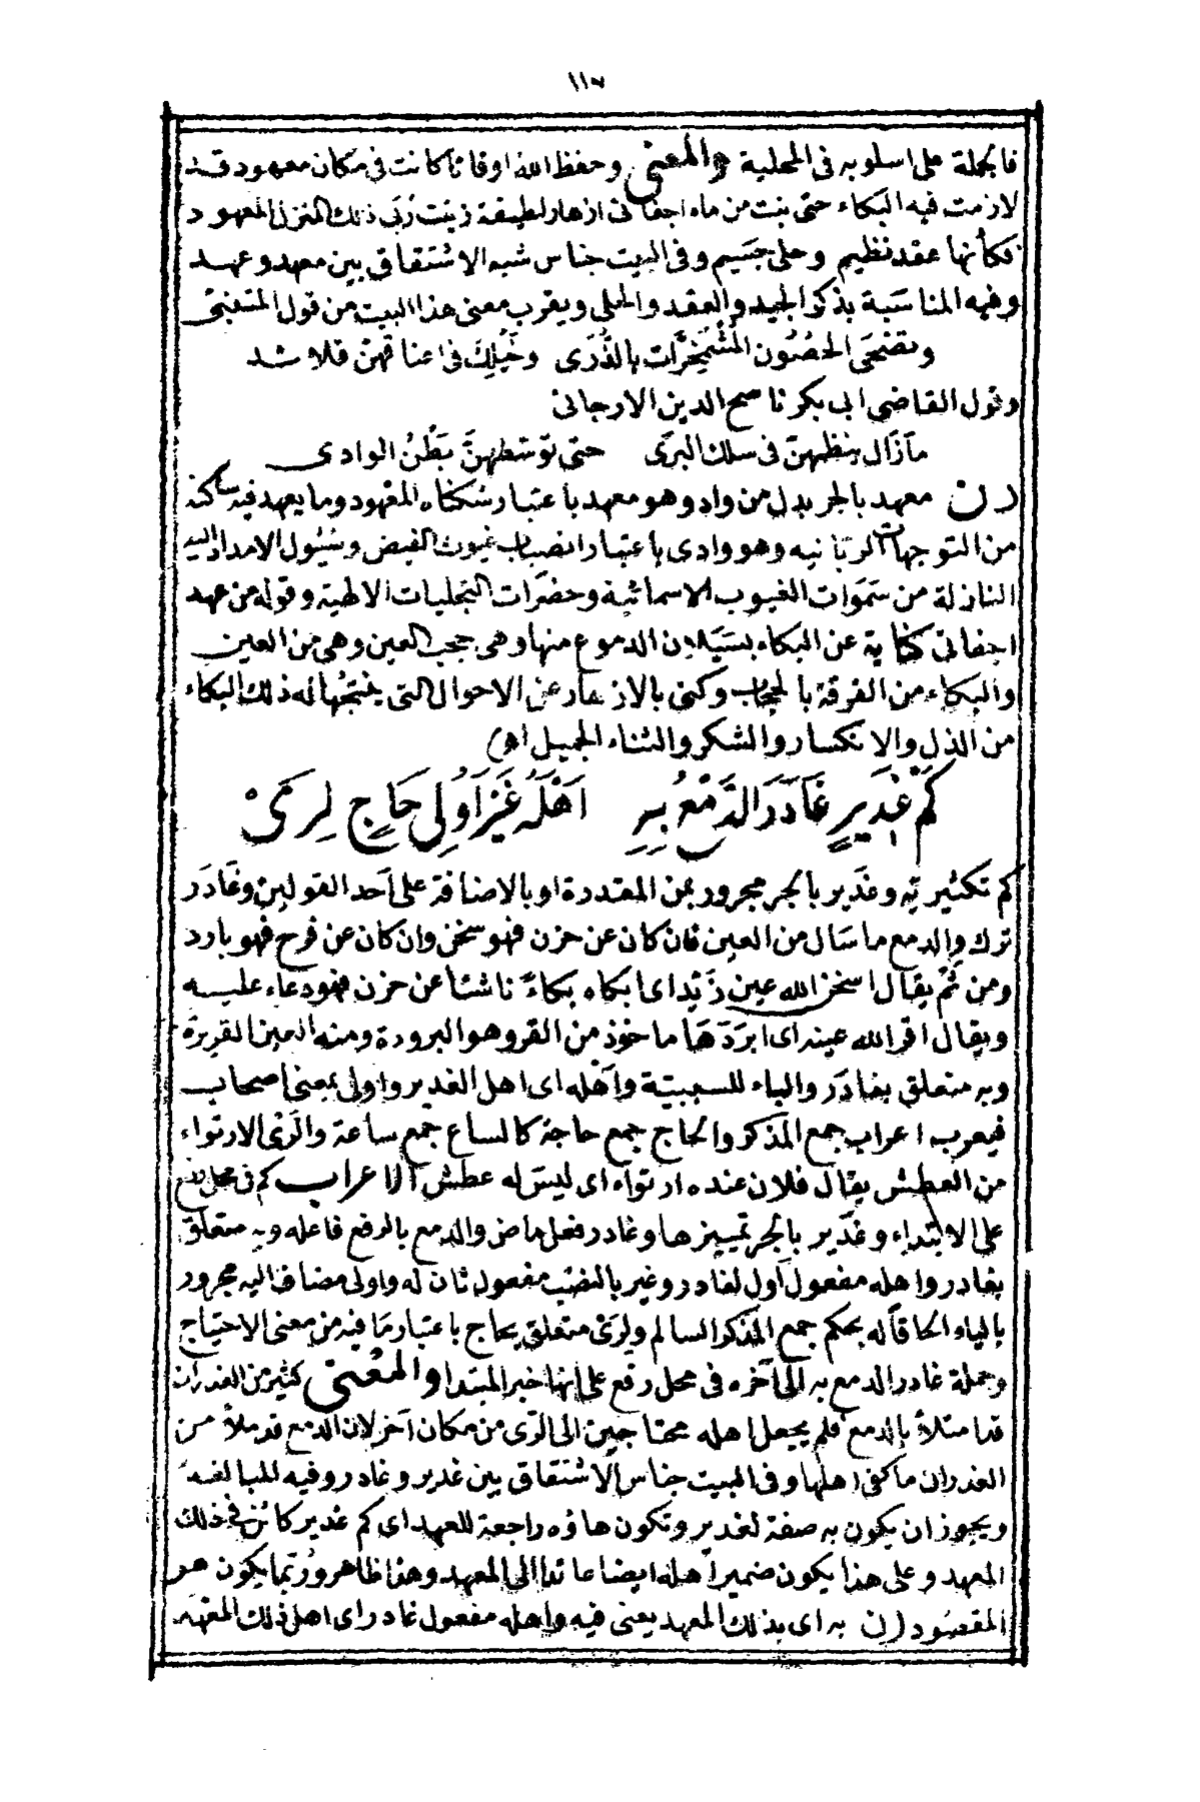 ١١٧
فالجملة على اسلوبه فى المحلية والمعنى وحفظ الله اوقاتا كانت فى مكان معهود قد
لازمت فيه البكاء حتى نبت من ماء اجفانى ازهار لطيفة زينت ربى ذلك المنزل المعهود
فكأنها عقد نظيم وحلى جسيم وفى البيت جناس شبه الاشتقاق بين معهد وعهد
وفيه المناسبة بذكر الجيد والعقد والحلى ويقرب معنى هذا البيت من قول المتنبى
وتضحى الحصون المشمخرات بالذرى وخيلك فى اعناقهن قلائد
وقول القاضى ابى بكر ناصح الدين الارجانى
مازال ينظمهن فى سلك البرى حتى توسطهن بطن الوادى
(ن معهد بالجر بدل من واد وهو معهد باعتبار سكناه المعهود وما يعهد فيه ساكنه
من التوجهات الربانيه وهو وادى باعتبار انصباب غيوث الفيض وسيول الامداد اليه
النازلة من سموات الغيوب الاسمائية وحضرات التجليات الالهية وقوله من عهد
اجفانى كناية عن البكاء بسيلان الدموع منها وهى حجب العين وهى من العين
والبكاء من الفرقة بالحجاب وكنى بالازهار عن الاحوال التى ينتجها له ذلك البكاء
من الذل والانكسار والشكر والثناء الجميل اه)
كَمْ غَدِيرٍ غَادَرَ الدَّمْعُ بِهِ اَهْلَهُ غَيْرَ اُولِى حَاجٍ لِرَىّْ
كم تكثيريّه وغدير بالجر مجرور بمن المقدرة او بالاضافة على احد القولين وغادر
ترك والدمع ما سال من العين فان كان عن حزن فهو سخن وان كان عن فرح فهو بارد
ومن ثم يقال اسخن الله عين زيد اى ابكاه بكاء ناشئا عن حزن فهو دعاء عليه
ويقال اقر الله عينه اى ابردها ماخوذ من القر وهو البرودة ومنه العين القريرة
وبه متعلق بغادر والباء للسببية واهله اى اهل الغدير واولى بمعنى اصحاب
فيعرب اعراب جمع المذكر والحاج جمع حاجة كالساع جمع ساعة والرى الارتواء
من العطش يقال فلان عنده ارتواء اى ليس له عطش الاعراب كم فى محل رفع
على الابتداء وغدير بالجر تمييزها وغادر فعل ماض والدمع بالرفع فاعله وبه متعلق
بغادر واهله مفعول اول لغادر وغير بالنصب مفعول ثان له واولى مضاف اليه مجرور
بالياء الحاقا له بحكم جمع المذكر السالم ولرى متعلق بحاج باعتبار ما فيه من معنى الاحتياج
وجملة غادر الدمع به الى آخره فى محل رفع على انها خبر المبتدا والمعنى كثير من الغدران
قد امتلأ بالدمع فلم يجعل اهله محتاجين الى الرى من مكان آخر لان الدمع قد ملأ من
الغدران ما كفى اهلها وفى البيت جناس الاشتقاق بين غدير وغادر وفيه المبالغة
ويجوز ان يكون به صفة لغدير وتكون هاؤه راجعة للعهد اى كم غدير كائن فى ذلك
المعهد وعلى هذا يكون ضمير اهله ايضا عائدا الى المعهد وهذا ظاهر وربما يكون هو
المقصود (ن به اى بذلك المعهد يعنى فيه واهله مفعول غادر اى اهل ذلك المعهد